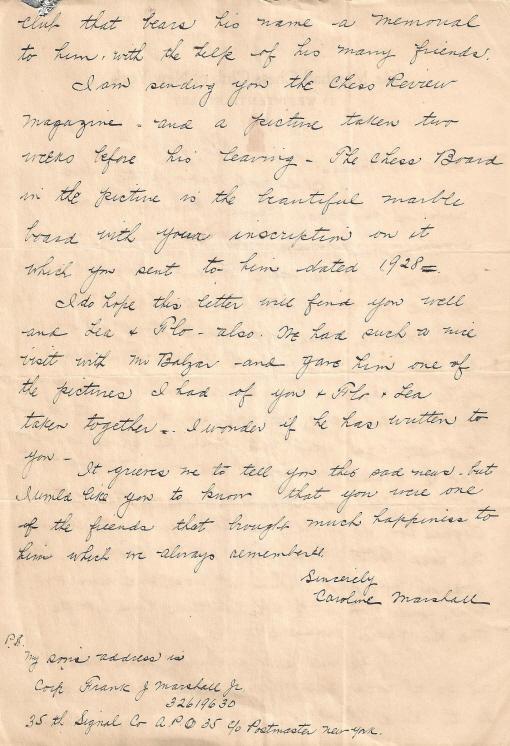 club that bears his name a memorial
to him. with the help of his many friends.
I am sending you the Chess Review
Magazine - and a picture taken two
weeks before his leaving - The Chess Board
in the picture is the beautiful marble
board with your inscription on it
which you sent to him dated 1928 =.
I do hope this letter will find you well
and Lea & Flo - also. We had such a nice
visit with Mr Balzar - and gave him one of
the pictures I had of you & Flo & Lea
taken together =. I wonder if he has written to
you -
It grieves me to tell you this sad news - but
I would like you to know that you were one
of the friends that brought much happiness to
him which we always remember.
Sincerely
Caroline Marshall
P.S.
My son's address is
Corp Frank J Marshall Jr.
32619630
35 th Signal Co A.P.O 35 c/o Postmaster New York.